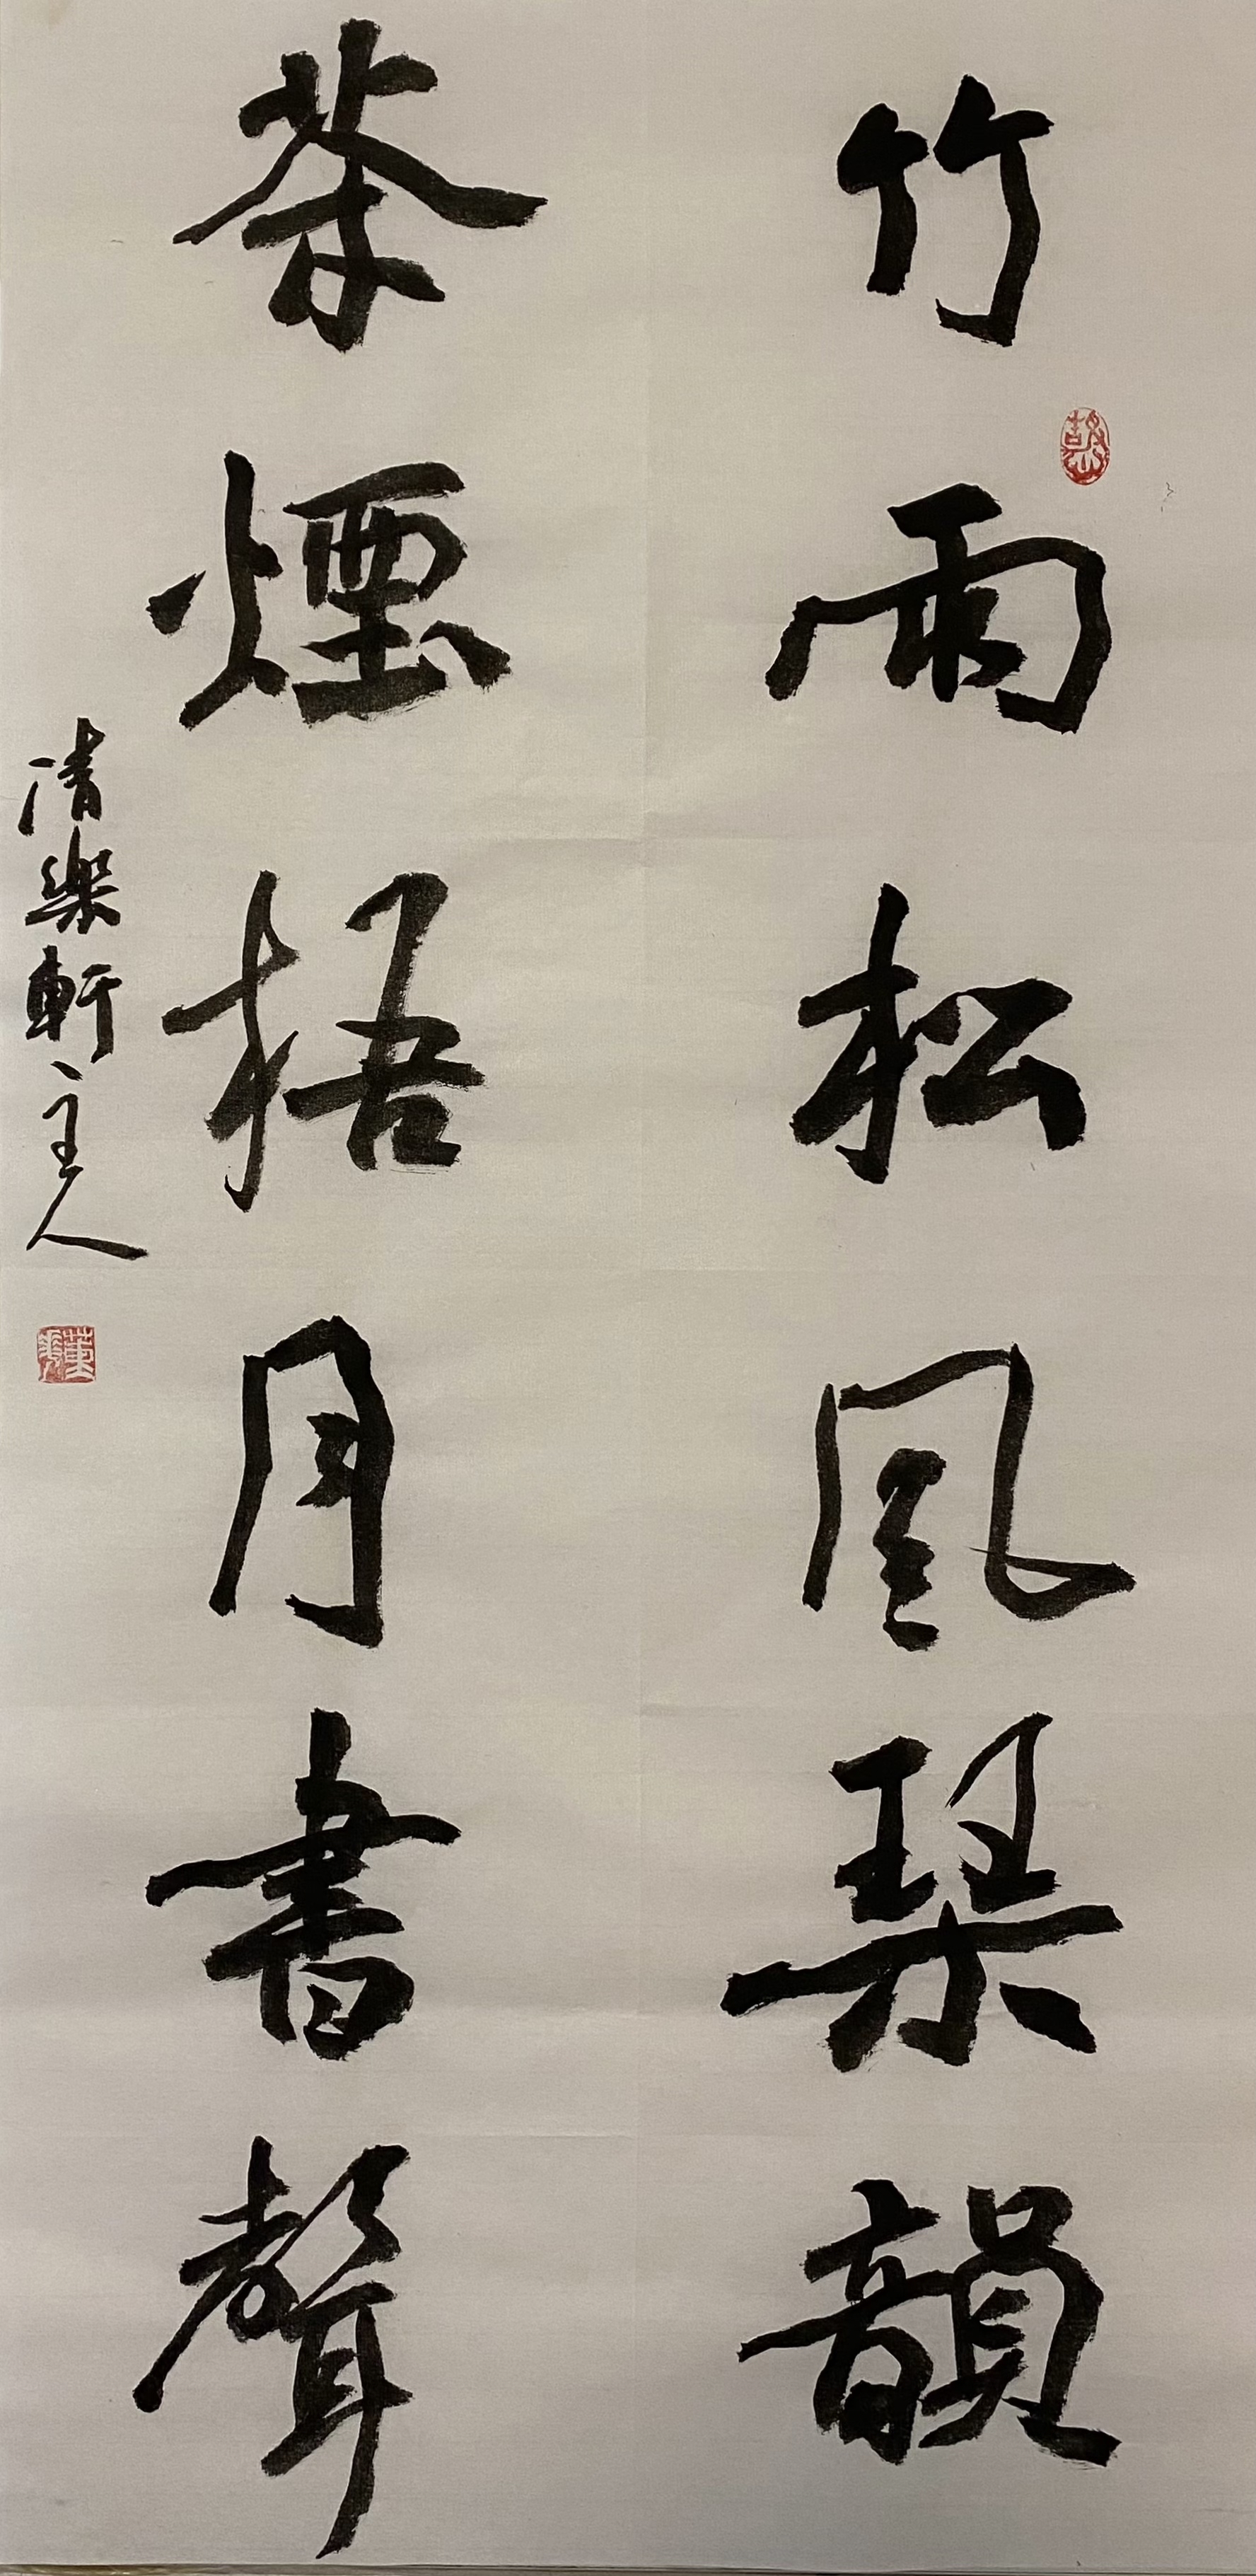 竹雨松風琴韻
茶煙梧月書聲
清樂軒主人